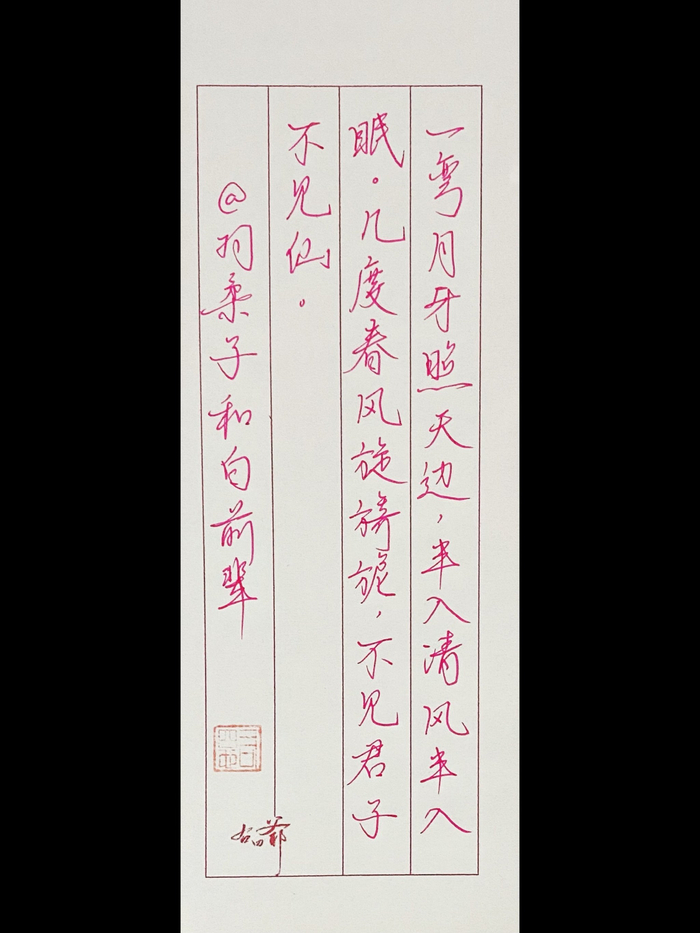 一弯月牙照天边，半入清风半入
眠。几度春风旋旖旎，不见君子
不见仙。
@羽柔子和白前辈